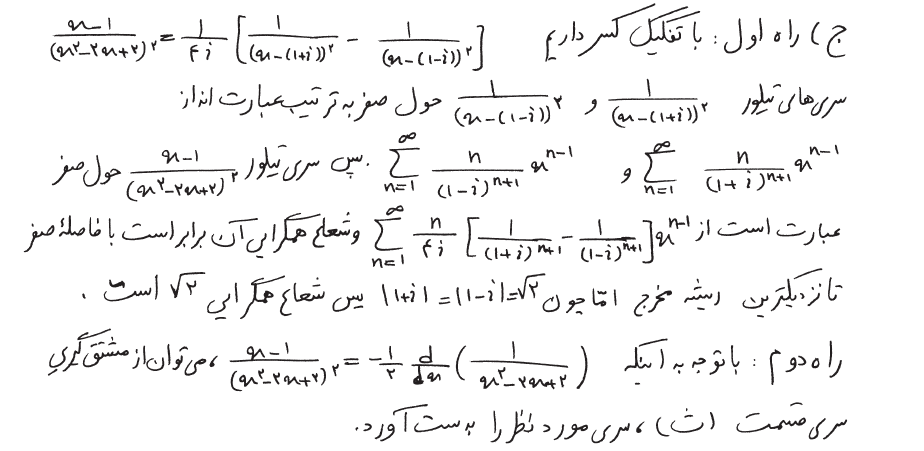 ج) راه اول: با تفکیک کسر داریم $\frac{x-1}{(x^۲-۲x+۲)^۲} = \frac{۱}{۴i}\left[\frac{۱}{(x-(۱+i))^۲} - \frac{۱}{(x-(۱-i))^۲}\right]$
سری‌های تیلور $\frac{۱}{(x-(۱+i))^۲}$ و $\frac{۱}{(x-(۱-i))^۲}$ حول صفر به ترتیب عبارت‌اند از
$\sum_{n=1}^{\infty} \frac{n}{(۱+i)^{n+1}} x^{n-1}$ و $\sum_{n=1}^{\infty} \frac{n}{(۱-i)^{n+1}} x^{n-1}$. پس سری تیلور $\frac{x-1}{(x^۲-۲x+۲)^۲}$ حول صفر
عبارت است از $\sum_{n=1}^{\infty} \frac{n}{۴i}\left[\frac{۱}{(۱+i)^{n+1}} - \frac{۱}{(۱-i)^{n+1}}\right] x^{n-1}$ و شعاع همگرایی آن برابر است با فاصلهٔ صفر
تا نزدیکترین ریشه مخرج امّا چون $|۱+i| = |۱-i| = \sqrt{۲}$ پس شعاع همگرایی $\sqrt{۲}$ است.
راه دوم: با توجه به اینکه $\frac{x-1}{(x^۲-۲x+۲)^۲} = \frac{-۱}{۲}\frac{d}{dx}\left(\frac{۱}{x^۲-۲x+۲}\right)$، می‌توان از مشتق‌گیری
سری قسمت (ث)، سری مورد نظر را بدست آورد.